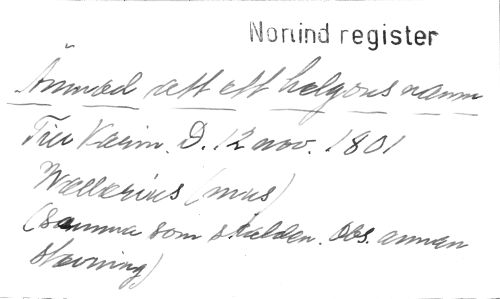 Norlind register
Ännæd att ett helgons namn
Till Karin. D. 12 nov. 1801
Wallerius (mus)
(samma som skalden. Obs. annan
stavning)